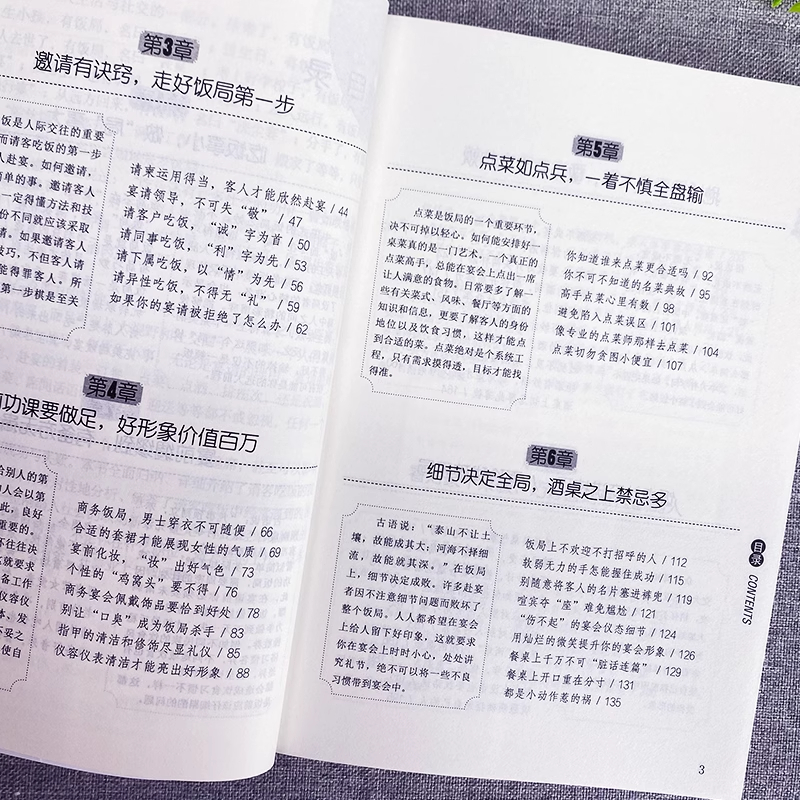 第3章
邀请有诀窍，走好饭局第一步
饭是人际交往的重要
而请客吃饭的第一步
人赴宴。如何邀请，
简单的事。邀请客人
一定得懂方法和技
份不同就应该采取
请。如果邀请客人
技巧，不但客人请
能得罪客人。所
第一步棋是至关
请柬运用得当，客人才能欣然赴宴 / 44
宴请领导，不可失“敬” / 47
请客户吃饭，“诚”字为首 / 50
请同事吃饭，“利”字为先 / 53
请下属吃饭，以“情”为先 / 56
请异性吃饭，不得无“礼” / 59
如果你的宴请被拒绝了怎么办 / 62
第4章
功课要做足，好形象价值百万
给别人的第
人会以第
此，良好
重要的。
不往往决
这就要求
备工作
仪容仪
体、发
不妥之
使自
商务饭局，男士穿衣不可随便 / 66
合适的套裙才能展现女性的气质 / 69
宴前化妆，“妆”出好气色 / 73
个性的“鸡窝头”要不得 / 76
商务宴会佩戴饰品要恰到好处 / 78
别让“口臭”成为饭局杀手 / 83
指甲的清洁和修饰尽显礼仪 / 85
仪容仪表清洁才能亮出好形象 / 88
第5章
点菜如点兵，一着不慎全盘输
点菜是饭局的一个重要环节，
决不可掉以轻心。如何能安排好一
桌菜真的是一门艺术。一个真正的
点菜高手，总能在宴会上点出一席
让人满意的食物。日常要多了解一
些有关菜式、风味、餐厅等方面的
知识和信息，更要了解客人的身份
地位以及饮食习惯，这样才能点
到合适的菜。点菜绝对是个系统工
程，只有需求摸得透，目标才能找
得准。
你知道谁来点菜更合适吗 / 92
你不可不知道的名菜典故 / 95
高手点菜心里有数 / 98
避免陷入点菜误区 / 101
像专业的点菜师那样去点菜 / 104
点菜切勿贪图小便宜 / 107
第6章
细节决定全局，酒桌之上禁忌多
古语说：“泰山不让土
壤，故能成其大；河海不择细
流，故能就其深。”在饭局
上，细节决定成败。许多赴宴
者因不注意细节问题而败坏了
整个饭局。人人都希望在宴会
上给人留下好印象，这就要求
你在宴会上时时小心，处处讲
究礼节，绝不可以将一些不良
习惯带到宴会中。
饭局上不欢迎不打招呼的人 / 112
软弱无力的手怎能握住成功 / 115
别随意将客人的名片塞进裤兜 / 119
喧宾夺“座”难免尴尬 / 121
“伤不起”的宴会仪态细节 / 124
用灿烂的微笑提升你的宴会形象 / 126
餐桌上千万不可“脏话连篇” / 129
餐桌上开口重在分寸 / 131
都是小动作惹的祸 / 135
目录
CONTENTS
3